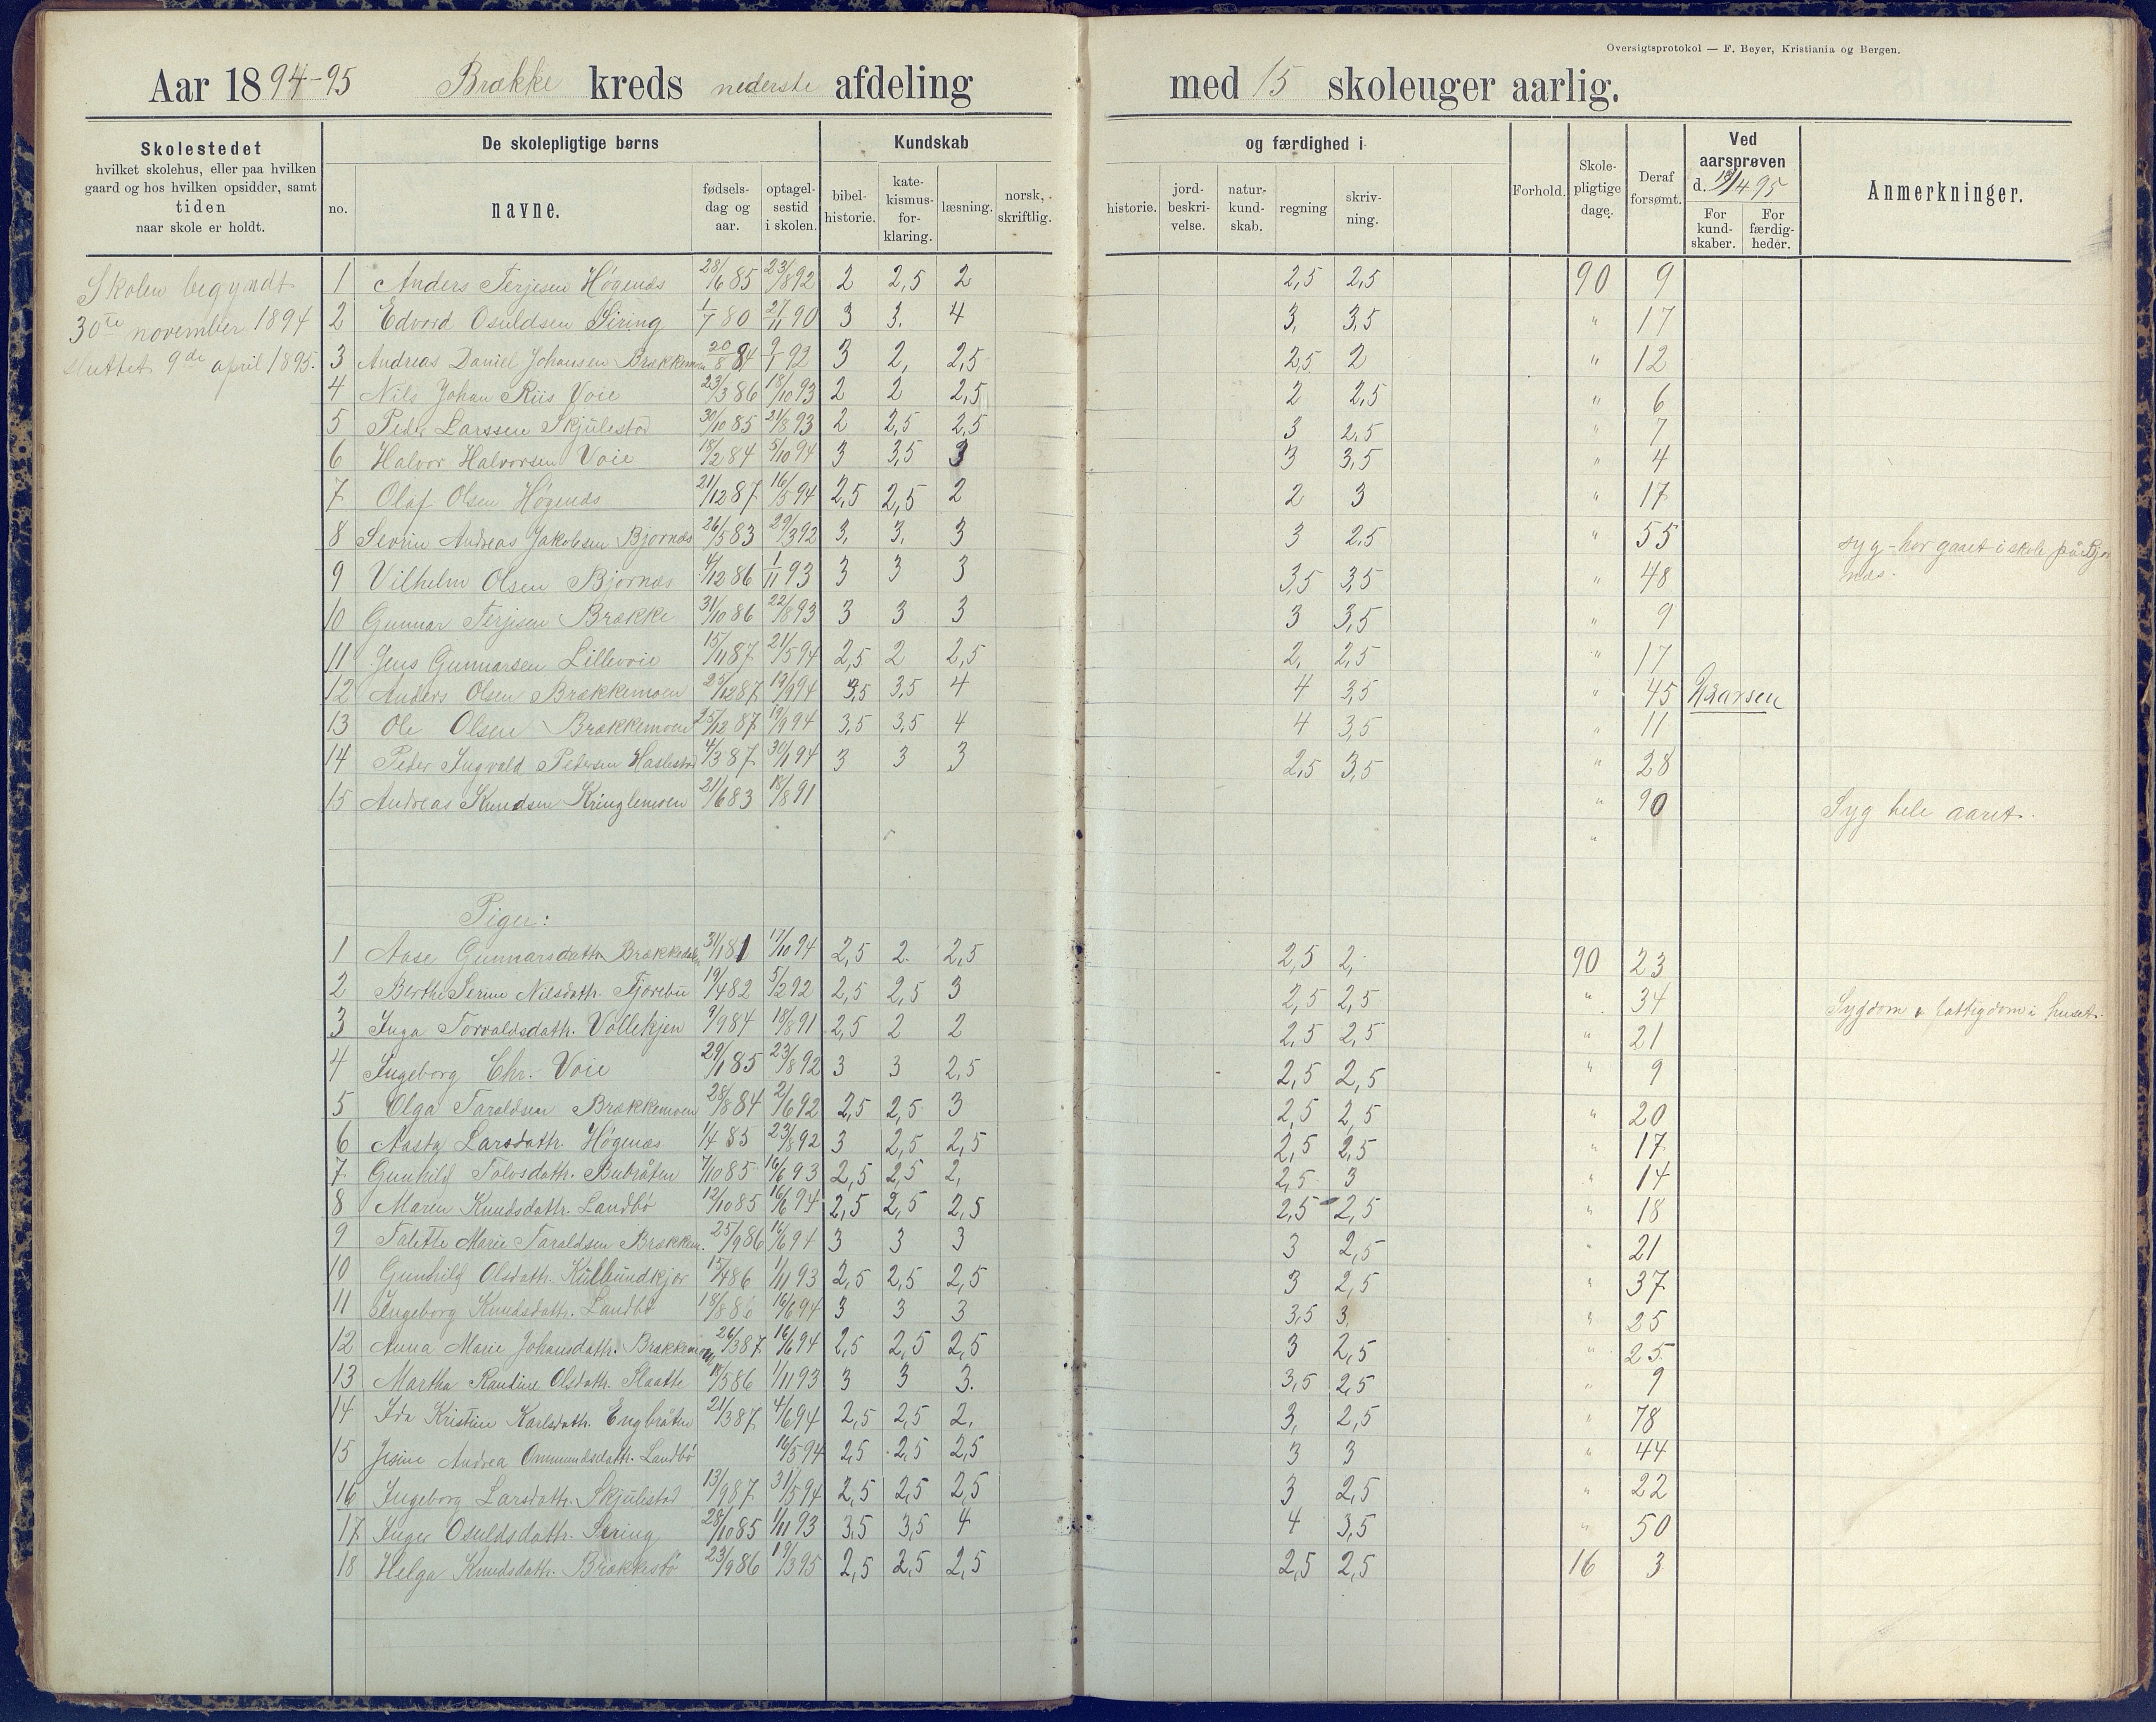 Oversigtsprotokol — F. Beyer, Kristiania og Bergen.
Aar 1894-95 Brække kreds nederste afdeling med 15 skoleuger aarlig.
Skolestedet
hvilket skolehus, eller paa hvilken
gaard og hos hvilken opsidder, samt
tiden
naar skole er holdt.
De skolepligtige børns
no. navne. fødsels-dag og aar. optagel-sestid i skolen.
Kundskab og færdighed i
bibel-historie. kate-kismus-for-klaring. læsning. norsk, skriftlig. historie. jord-beskri-velse. natur-kund-skab. regning skriv-ning.
Forhold. Skole-pligtige dage. Deraf forsømt.
Ved aarsprøven d. 19/4 95
For kund-skaber. For færdig-heder.
Anmerkninger.
Skolen begyndt
30te november 1894
sluttet 9de april 1895.
1 Anders Terjesen Høgenæs 28/6 85 23/8 92 2 2,5 2 2,5 2,5 90 9
2 Edvard Osuldsen Siring 1/7 80 27/11 90 3 3. 4 3, 3,5 " 17
3 Andreas Daniel Johansen Brækkemoen 20/8 84 9/1 92 3 2, 2,5 2,5 2 " 12
4 Nils Johan Riis Voie 23/3 86 18/10 93 2 2 2,5 2 2,5 " 6
5 Peder Larssen Skjulestad 30/10 85 21/8 93 2 2,5 2,5 3 2,5 " 7
6 Halvor Halvorsen Voie 18/2 84 5/10 94 3 3,5 3 3 3,5 " 4
7 Olaf Olsen Høgenæs 21/12 87 16/5 94 2,5 2,5 2 2 3 " 17
8 Severin Andreas Jakobsen Bjornæs 26/5 83 29/3 92 3, 3, 3 3 2,5 " 55 syg - har gaaet i skole på Bjor
næs.
9 Vilhelm Olsen Bjornæs 4/12 86 1/11 93 3 3 3 3,5 3,5 " 48
10 Gunnar Terjesen Brække 31/10 86 22/8 93 3 3 3 3 3,5 " 9
11 Jens Gunnarsen Lillevoie 15/11 87 21/5 94 2,5 2 2,5 2, 2,5 " 17
12 Anders Olsen Brækkemoen 25/12 87 19/9 94 3,5 3,5 4 4 3,5 " 45
13 Ole Olsen Brækkemoen 25/12 87 19/9 94 3,5 3,5 4 4 3,5 " 11
14 Peder Ingvald Pedersen Haslestad 4/3 87 30/1 94 3 3 3 2,5 3,5 " 28
15 Andreas Knudsen Kringlemoen 21/6 83 18/8 91 " 90 Syg hele aaret.
"
Piger:
1 Aase Gunnarsdattr. Brækkedalen 31/1 81 17/10 94 2,5 2. 2,5 2,5 2, 90 23
2 Berthe Serine Nilsdattr. Fjorebu 19/4 82 5/2 92 2,5 2,5 3 2,5 2,5 " 34 Sygdom & fattigdom i huset.
3 Inga Torvaldsdattr. Vollekjen 9/9 84 18/8 91 2,5 2 2 2,5 2,5 " 21
4 Ingeborg Chr. Voie 29/1 85 23/8 92 3 3 2,5 2,5 2,5 " 9
5 Olga Taraldsen Brækkemoen 28/8 84 2/6 92 2,5 2,5 3 2,5 2,5 " 20
6 Aasta Larsdattr. Høgenæs 1/4 85 23/8 92 3 2,5 2,5 2,5 2,5 " 17
7 Gunhild Tolvsdattr. Bubråten 7/10 85 16/6 93 2,5 2,5 2, 2,5 3 " 14
8 Maren Knudsdattr. Landbø 12/10 85 16/6 94 2,5 2,5 2,5 2,5 2,5 " 18
9 Talette Marie Taraldsen Brækkem. 25/9 86 16/6 94 3 3 3 3 2,5 " 21
10 Gunhild Olsdattr. Kullundkjær 15/4 86 1/11 93 2,5 2,5 2,5 3 2,5 " 37
11 Ingeborg Knudsdattr. Landbø 18/8 86 16/6 94 3 3 3 3,5 3, " 25
12 Anna Marie Johansdattr. Brækkemoen 26/3 87 16/6 94 2,5 2,5 2,5 3 2,5 " 25
13 Martha Randine Olsdattr. Slaatte 18/5 86 1/11 93 3 3 3. 3,5 2,5 " 9
14 Ida Kristine Karlsdattr. Engbråten 21/3 87 4/6 94 2,5 2,5 2, 3, 2,5 " 78
15 Jesine Andrea Ommundsdattr. Landbø 16/5 94 2,5 2,5 2,5 3 3 " 44
16 Ingeborg Larsdattr. Skjulestad 13/9 87 31/5 94 2,5 2,5 2,5 3 2,5 " 22
17 Inger Osuldsdattr. Siring 28/10 85 1/11 93 3,5 3,5 4 4 3,5 " 50
18 Helga Knudsdattr. Brækkestø 23/9 86 19/3 95 2,5 2,5 2,5 2,5 2,5 16 3